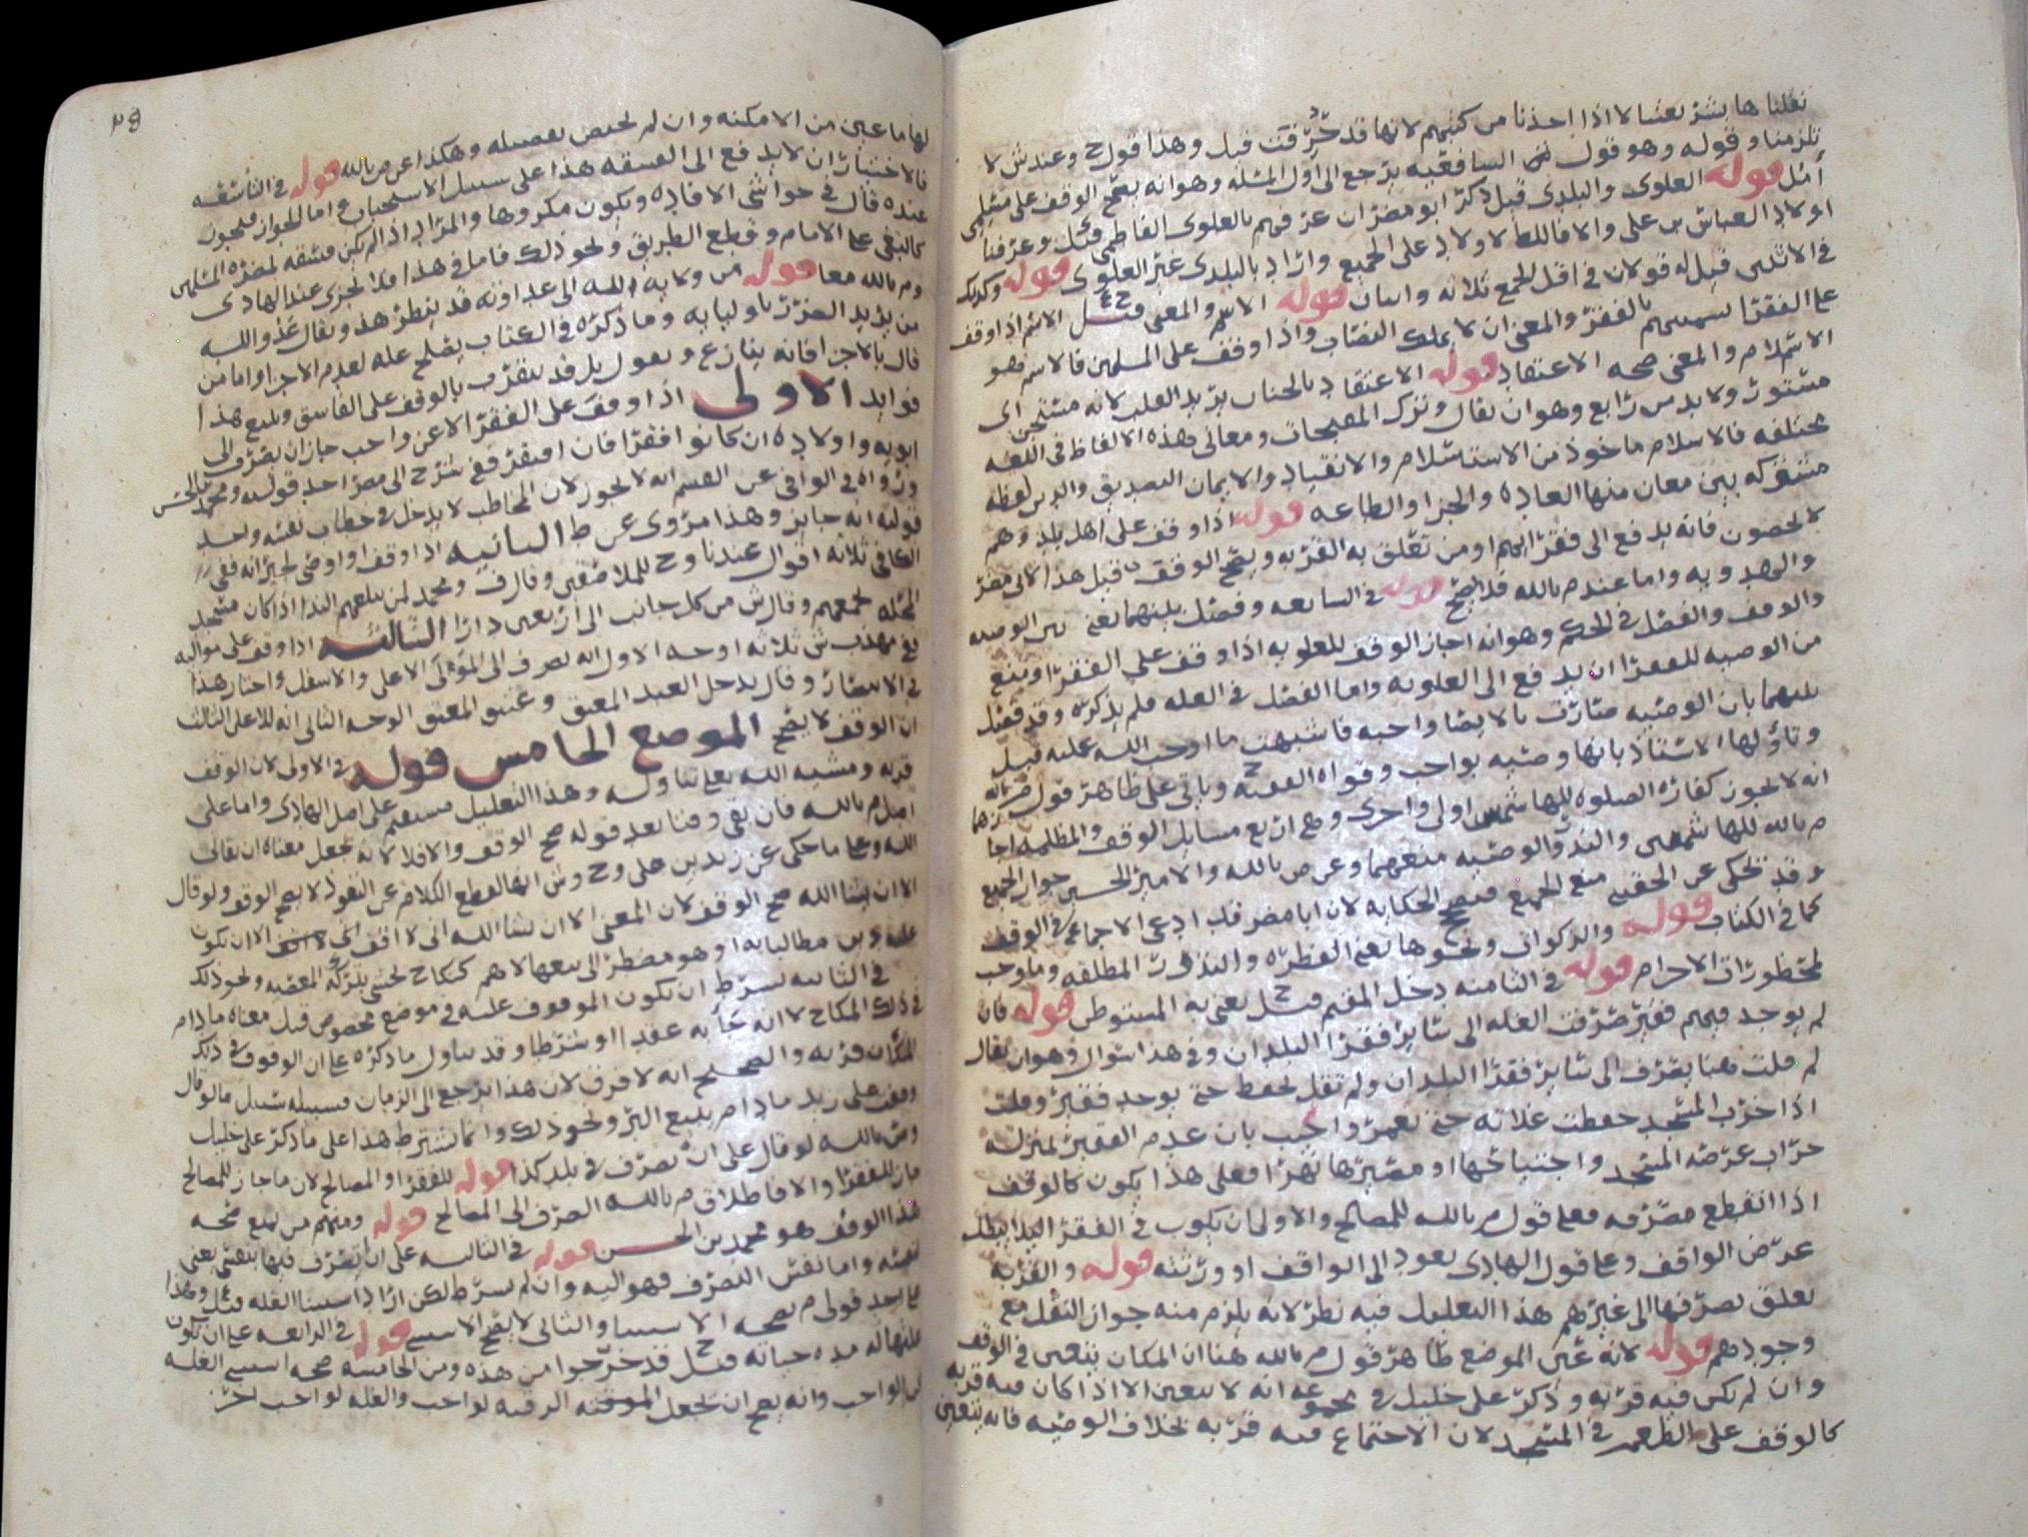 نقلنا ها بشريعتنا لا اذا اخذنا من كتبهم لانها قد حرفت قيل وهذا قول ح وعند ش لا
تلزمنا وقوله وهو قول الشافعيه يرجع الى اول المسله وهو انه يصح الوقف على مسلمي
قوله العلوى والبلدى قيل ذكر ابو مضر ان عرفهم بالعلوى الفاطمي وعرفنا
اولاد العباس بن على والا فاللفظ لاولاد على الجميع واراد بالبلدى غير العلوى قوله وكذلك
في الاثنين قيل له قولان في اقل الجمع ثلاثه واثنان قوله الاسم والمعنى الاسم اذا وقف
على الفقرا بالفقر والمعنى ان لا يملك النصاب واذا وقف على المسلمين فالاسم هو
الاسلام والمعنى صحه الاعتقاد قوله الاعتقاد بالجنان يريد القلب لانه مستجن اى
مستور ولا بد من رابع وهو ان يقال وترك المقبحات ومعانى هذه الالفاظ في اللغه
مختلفه فالاسلام ماخوذ من الاستسلام والانقياد والايمان التصديق والدين لفظه
مشتركه بين معان منها العاده والجزا والطاعه قوله اذا وقف على اهل بلد وهم
لا يحصون فانه يدفع الى فقرائهم او من تعلق به القربه ويصح الوقف قيل هذا
واما عند م بالله فلا يصح قوله في السابعه وفصل بينهما يعنى بين الوصيه
والوقف والفصل في الحكم وهو انه اجاز الوقف للعلويه اذا وقف على الفقرا ومنع
من الوصيه للفقرا ان يدفع الى العلويه واما الفصل في العله فلم يذكره وقد فصل
بينهما بان الوصيه صارت بالايصا واجبه فاشبهت ما اوجب الله عليه قيل
وتاولها الاستاذ بانها وصيه بواجب وقواه الفقيه ح وباقى على ظاهر قول م بالله
انه لا يجوز كفاره الصلوه للهاشميين اولى واحرى وهى اربع مسايل الوقف والمظلمه اجازهما
م بالله للهاشميين والنذر والوصيه منعهما وعن ص بالله والامير الحسين جواز الجميع
وقد يحكى عن الحقينى منع الجميع الحكايه لان ابا مضر قد ادعى الاجماع في الوقف
كما في الكتاب قوله والزكوات ونحوها يعنى الفطره والنذور المطلقه وما وجب
لمحظورات الاحرام قوله في الثامنه دخل المقيم قيل ح يعنى به المستوطن قوله فان
لم يوجد فيهم فقير صرفت الغله الى ساير فقرا البلدان وفى هذا سوال وهو ان يقال
لم قلت هنا يصرف الى ساير فقرا البلدان ولم تقل يحفظ حتى يوجد فقير وقلت
اذا خرب المسجد حفظت غلاته حتى يعمر واجيب بان عدم الفقير بمنزله
خراب عرصه المسجد واجتياحها او مصيرها نهرا فعلى هذا يكون كالوقف
اذا انقطع مصرفه فعلى قول م بالله للمصالح والاولى ان يكون في الفقرا
عرض الواقف وعلى قول الهادى يعود الى الواقف او ورثته قوله والقربه
تعلق بصرفها الى غيرهم هذا التعليل فيه نظر لانه يلزم منه جواز النقل مع
وجودهم قوله لانه عين الموضع ظاهر قول م بالله هنا ان المكان يتعين في الوقف
وان لم تكن فيه قربه وذكر على خليل في مجموعه انه لا يتعين الا اذا كان فيه قربه
كالوقف على في المسجد لان الاجتماع فيه قربه بخلاف الوصيه فانه يتعين
٤٨
لها ما عين من الامكنه وان لم يختص بفضيله وهكذا عن ص بالله قوله في التاسعه
فالاختيار ان لا يدفع الى الفسقه هذا على سبيل الاستحباب واما الجواز فيجوز
عنده قال في حواشى الافاده ويكون مكروها والمراد اذا لم يكن فسقه لمضره المسلمين
كالبغى على الامام وقطع الطريق ونحو ذلك فاما في هذا فلا يجزى عند الهادى
وم بالله معا قوله من ولايه الله الى عداوته قد ينظر هذا ويقال عدو الله
من يريد الضرر باوليايه وما ذكره في الكتاب يصلح عله لعدم الاجزا واما من
قال بالاجزا فانه ينازع ويقول بل قد يتقرب بالوقف على الفاسق ويتبع هذا
فوايد الاولى اذا وقف على الفقرا لا عن واجب جاز ان يصرف الى
ابويه واولاده ان كانوا فقرا فان افتقر ففى شرح ابى مضر احد قوليه ومحمد بن الحسن
ورواه في الوافى عن القسم انه لا يجوز لان المخاطب لا يدخل في خطاب نفسه واحد
قوليه انه جايز وهذا مروى عن ط الثانيه اذا وقف او اوصى لجيرانه ففى
الكافى ثلاثه اقوال عندنا وح للملاصقين وقال ف ومحمد لمن يبلغهم الندا اذا كان مسجد
المحله يجمعهم وقال ش من كل جانب الى اربعين دارا الثالثه اذا وقف على مواليه
في مهذب ش ثلاثه اوجه الاول انه يصرف الى المولى الاعلى والاسفل واختار هذا
في الانتصار وقال يدخل العبد المعتق وعتيق المعتق الوجه الثانى انه للاعلى الثالث
ان الوقف لا يصح الموضع الخامس قوله في الاولى لان الوقف
قربه ومشيه الله تعالى تناوله وهذا التعليل مستقيم على اصل الهادى واما على
اصل م بالله فان بقى وقتا بعد قوله صح الوقف والا فلا لانه يجعل معناه ان يقانى
الله وعلى ما حكى عن زيد بن على وح وش انها لقطع الكلام عن النفوذ لا يصح الوقف ولو قال
الا ان يشا الله صح الوقف لان المعنى الا ان يشا الله انى لا اقف انى لا اقف الا ان يكون
عليه دين مطالبا به او هو مضطر الى بيعها لاهم كنكاح يخشى بتركه المعصيه ونحو ذلك
في الثانيه يشرط ان يكون الموقوف عليه في موضع مخصوص قيل معناه ما دام
في ذلك المكان لا انه جابه عقدا او شرطا وقد تناول ما ذكره على ان الوقوف في ذلك
المكان قربه والصحيح انه لا فرق لان هذا يرجع الى الزمان فسبيله سبيل ما لو قال
وقفت على زيد ما دام يبيع البز ونحو ذلك وانما يشترط هذا على ما ذكر على خليل
وم بالله لو قال على ان يصرف في بلد كذا قوله للفقرا او المصالح لان ما جاز للمصالح
جاز للفقرا والا فاطلاق م بالله الصرف الى المصالح قوله ومنهم من يمنع صحه
هذا الوقف هو محمد بن الحسن قوله في الثالثه على ان يتصرف فيها بنفسه يعنى
لنفسه واما نفس التصرف فهو اليه وان لم يشرط لكن اراد استثنا الغله قيل وهذا
على احد قولى م بصحه الاستثنا والثانى لا يصح الاستثنى قوله في الرابعه على ان تكون
غلتها له مده حياته قيل ح قد خرجوا من هذه ومن الخامسه صحه استثنى الغله
عن الواجب وانه يصح ان يجعل الموقف الرقبه لواجب والغله لواجب اخر